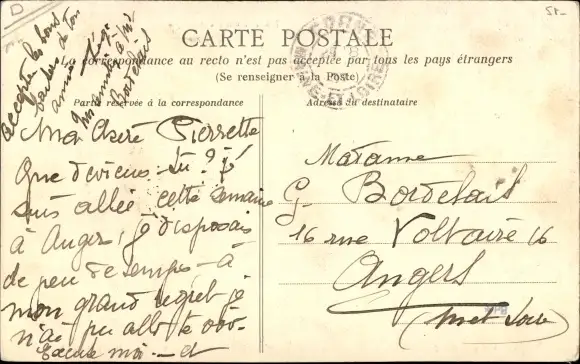 CARTE POSTALE
La correspondance au recto n'est pas acceptée par tous les pays étrangers
(Se renseigner à la Poste)
Partie réservée à la correspondance
Adresse du destinataire
Ma Chère Pierrette
Que deviens-tu? j'
suis allée cette semaine
à Angers, je disposais
de peu de temps - à
mon grand regret je
n'ai pu aller te voir -
Excuse moi - et
accepte les bons
baisers de ton
amie
Mon amitié à Mr
Bordelais
Madame
G. Bordelais
16 rue Voltaire 16
Angers
(Met Loire)